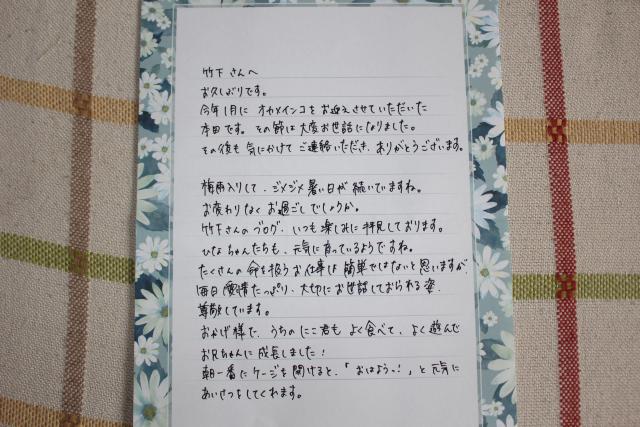 竹下さんへ
お久しぶりです。
今年1月に オカメインコをお迎えさせていただいた
本田です。その節は大変お世話になりました。
その後も気にかけてご連絡いただき、ありがとうございます。
梅雨入りして、ジメジメ暑い日が続いていますね。
お変わりなくお過ごしでしょうか。
竹下さんのブログ、いつも楽しみに拝見しております。
ひなちゃんたちも、元気に育っているようですね。
たくさんの命を扱うお仕事は簡単ではないと思いますが、
毎日愛情たっぷり、大切にお世話しておられる姿、
尊敬しています。
おかげ様で、うちのにこ君もよく食べて、よく遊んで
お兄ちゃんに成長しました!
朝一番にケージを開けると、「おはよう~!」と元気に
あいさつをしてくれます。